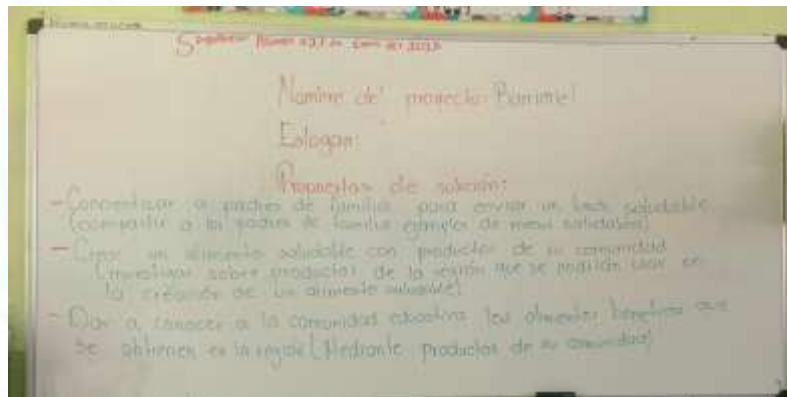 Nombre del proyecto: Barrimiel
Eslogan:
Propuestas de solución:
- Concientizar a padres de familia para enviar un lunch saludable
(compartir a los padres de familia ejemplos de menú saludables)
- Crear un alimento saludable con productos de su comunidad
(investigar sobre productos de la región que se podrían usar en
la creación de un alimento saludable)
- Dar a conocer a la comunidad educativa los alimentos benéficos que
se obtienen en la región (Mediante productos de su comunidad)